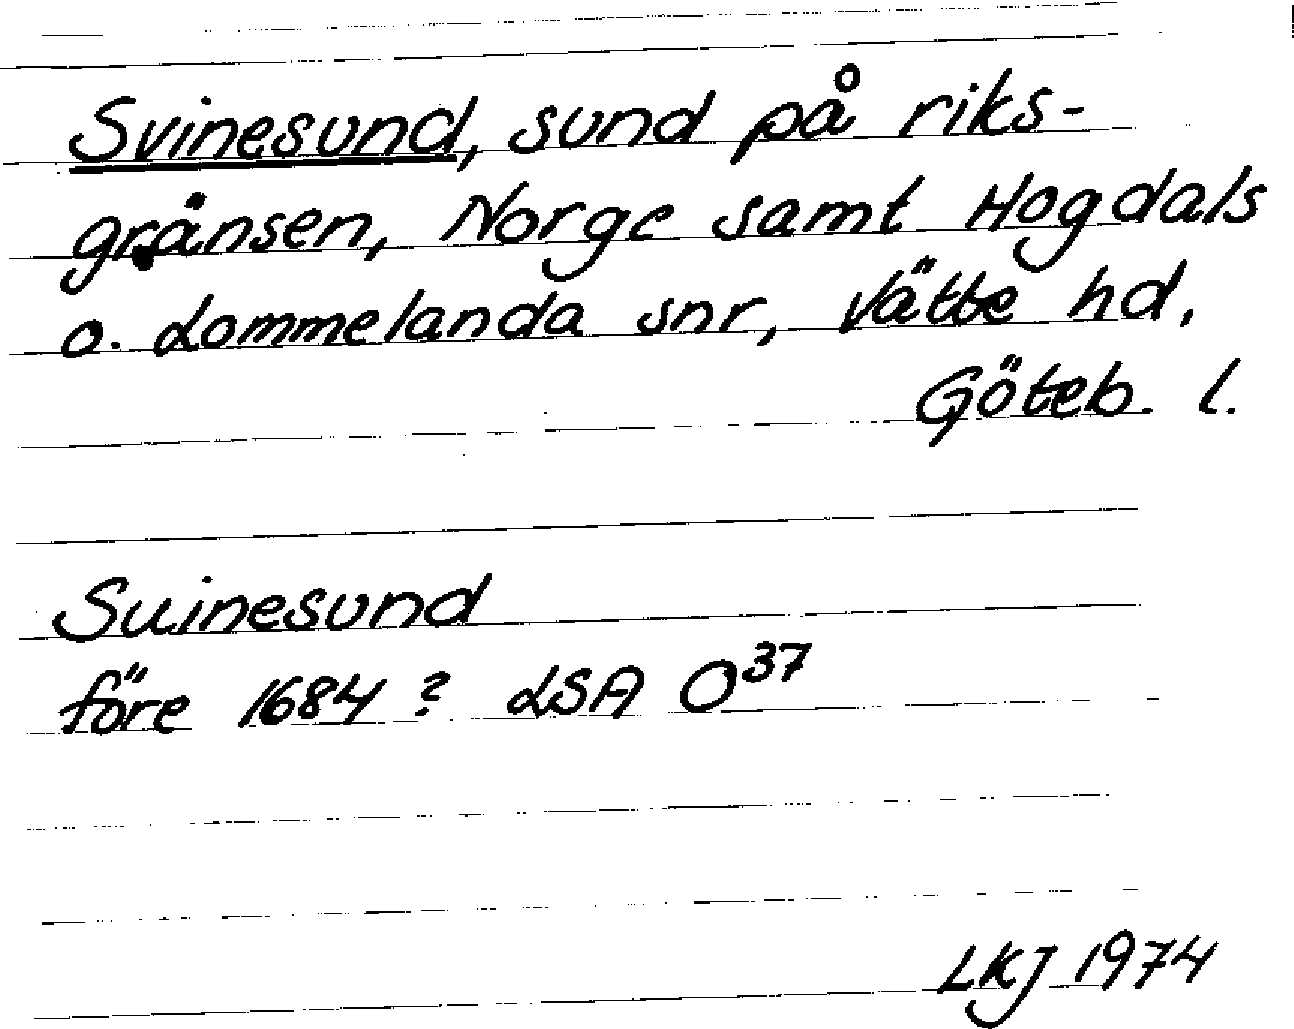 Svinesund, sund på riks-
gränsen, Norge samt Hogdals
o. Lommelanda snr, Vätte hd,
Göteb. l.
Suinesund
före 1684? LSA O37
LKJ 1974